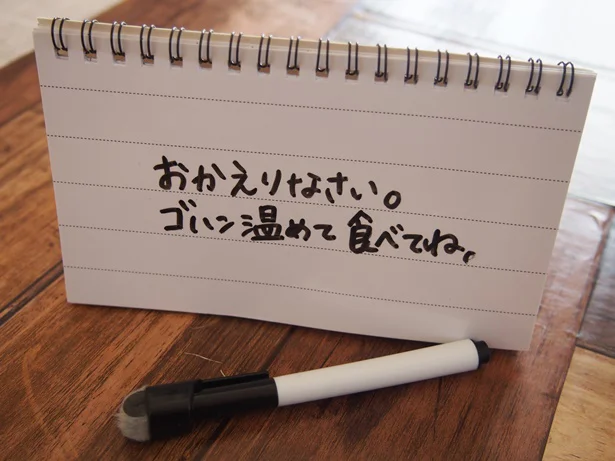 おかえりなさい。
ゴハン温めて食べてね。